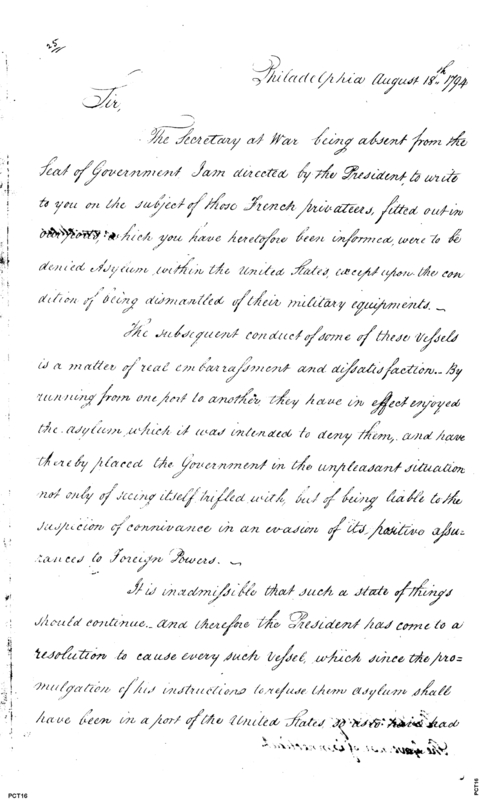 Philadelphia August 18th. 1794
Sir,
The Secretary at War being absent from the
Seat of Government I am directed by the President, to write
to you on the subject of those French privateers, fitted out in
our ports, which you have heretofore been informed, were to be
denied Asylum, within the United States, except upon the con
dition of being dismantled of their military equipments. —
The subsequent conduct of some of these vessels
is a matter of real embarrassment and dissatisfaction — By
running from one port to another, they have in effect enjoyed
the asylum, which it was intended to deny them, and have
thereby placed the Government in the unpleasant situation
not only of seeing itself trifled with, but of being liable to the
suspicion of connivance in an evasion of its, positive assu=
rances to Foreign Powers. —
It is inadmissible that such a state of things
should continue — and therefore the President has come to a
resolution to cause every such vessel, which since the pro=
mulgation of his instructions to refuse them asylum shall
have been in a port of the United States, so as to have had
PCT16
PCT16